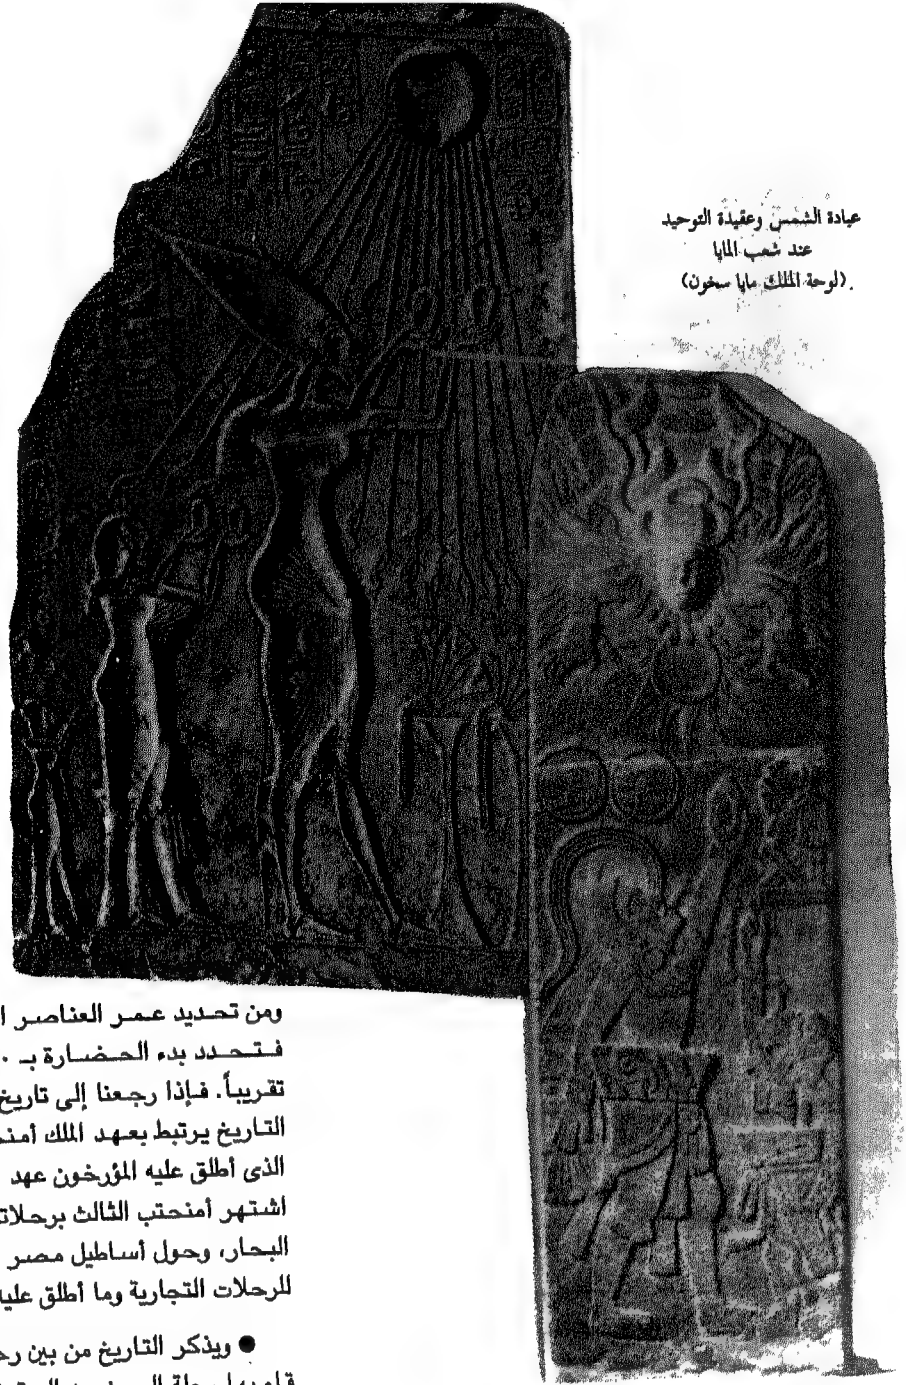 عبادة الشمس وعقيدة التوحيد
عند شعب المايا
(لوحة الملك مايا سخون).
ومن تحديد عمر العناصر ا
فتحدد بدء الحضارة بـ ٠
تقريباً. فإذا رجعنا إلى تاريخ
التاريخ يرتبط بعهد الملك أمنح
الذى أطلق عليه المؤرخون عهد
اشتهر أمنحتب الثالث برحلاته
البحار، وحول أساطيل مصر
للرحلات التجارية وما أطلق عليه
● ويذكر التاريخ من بين رح